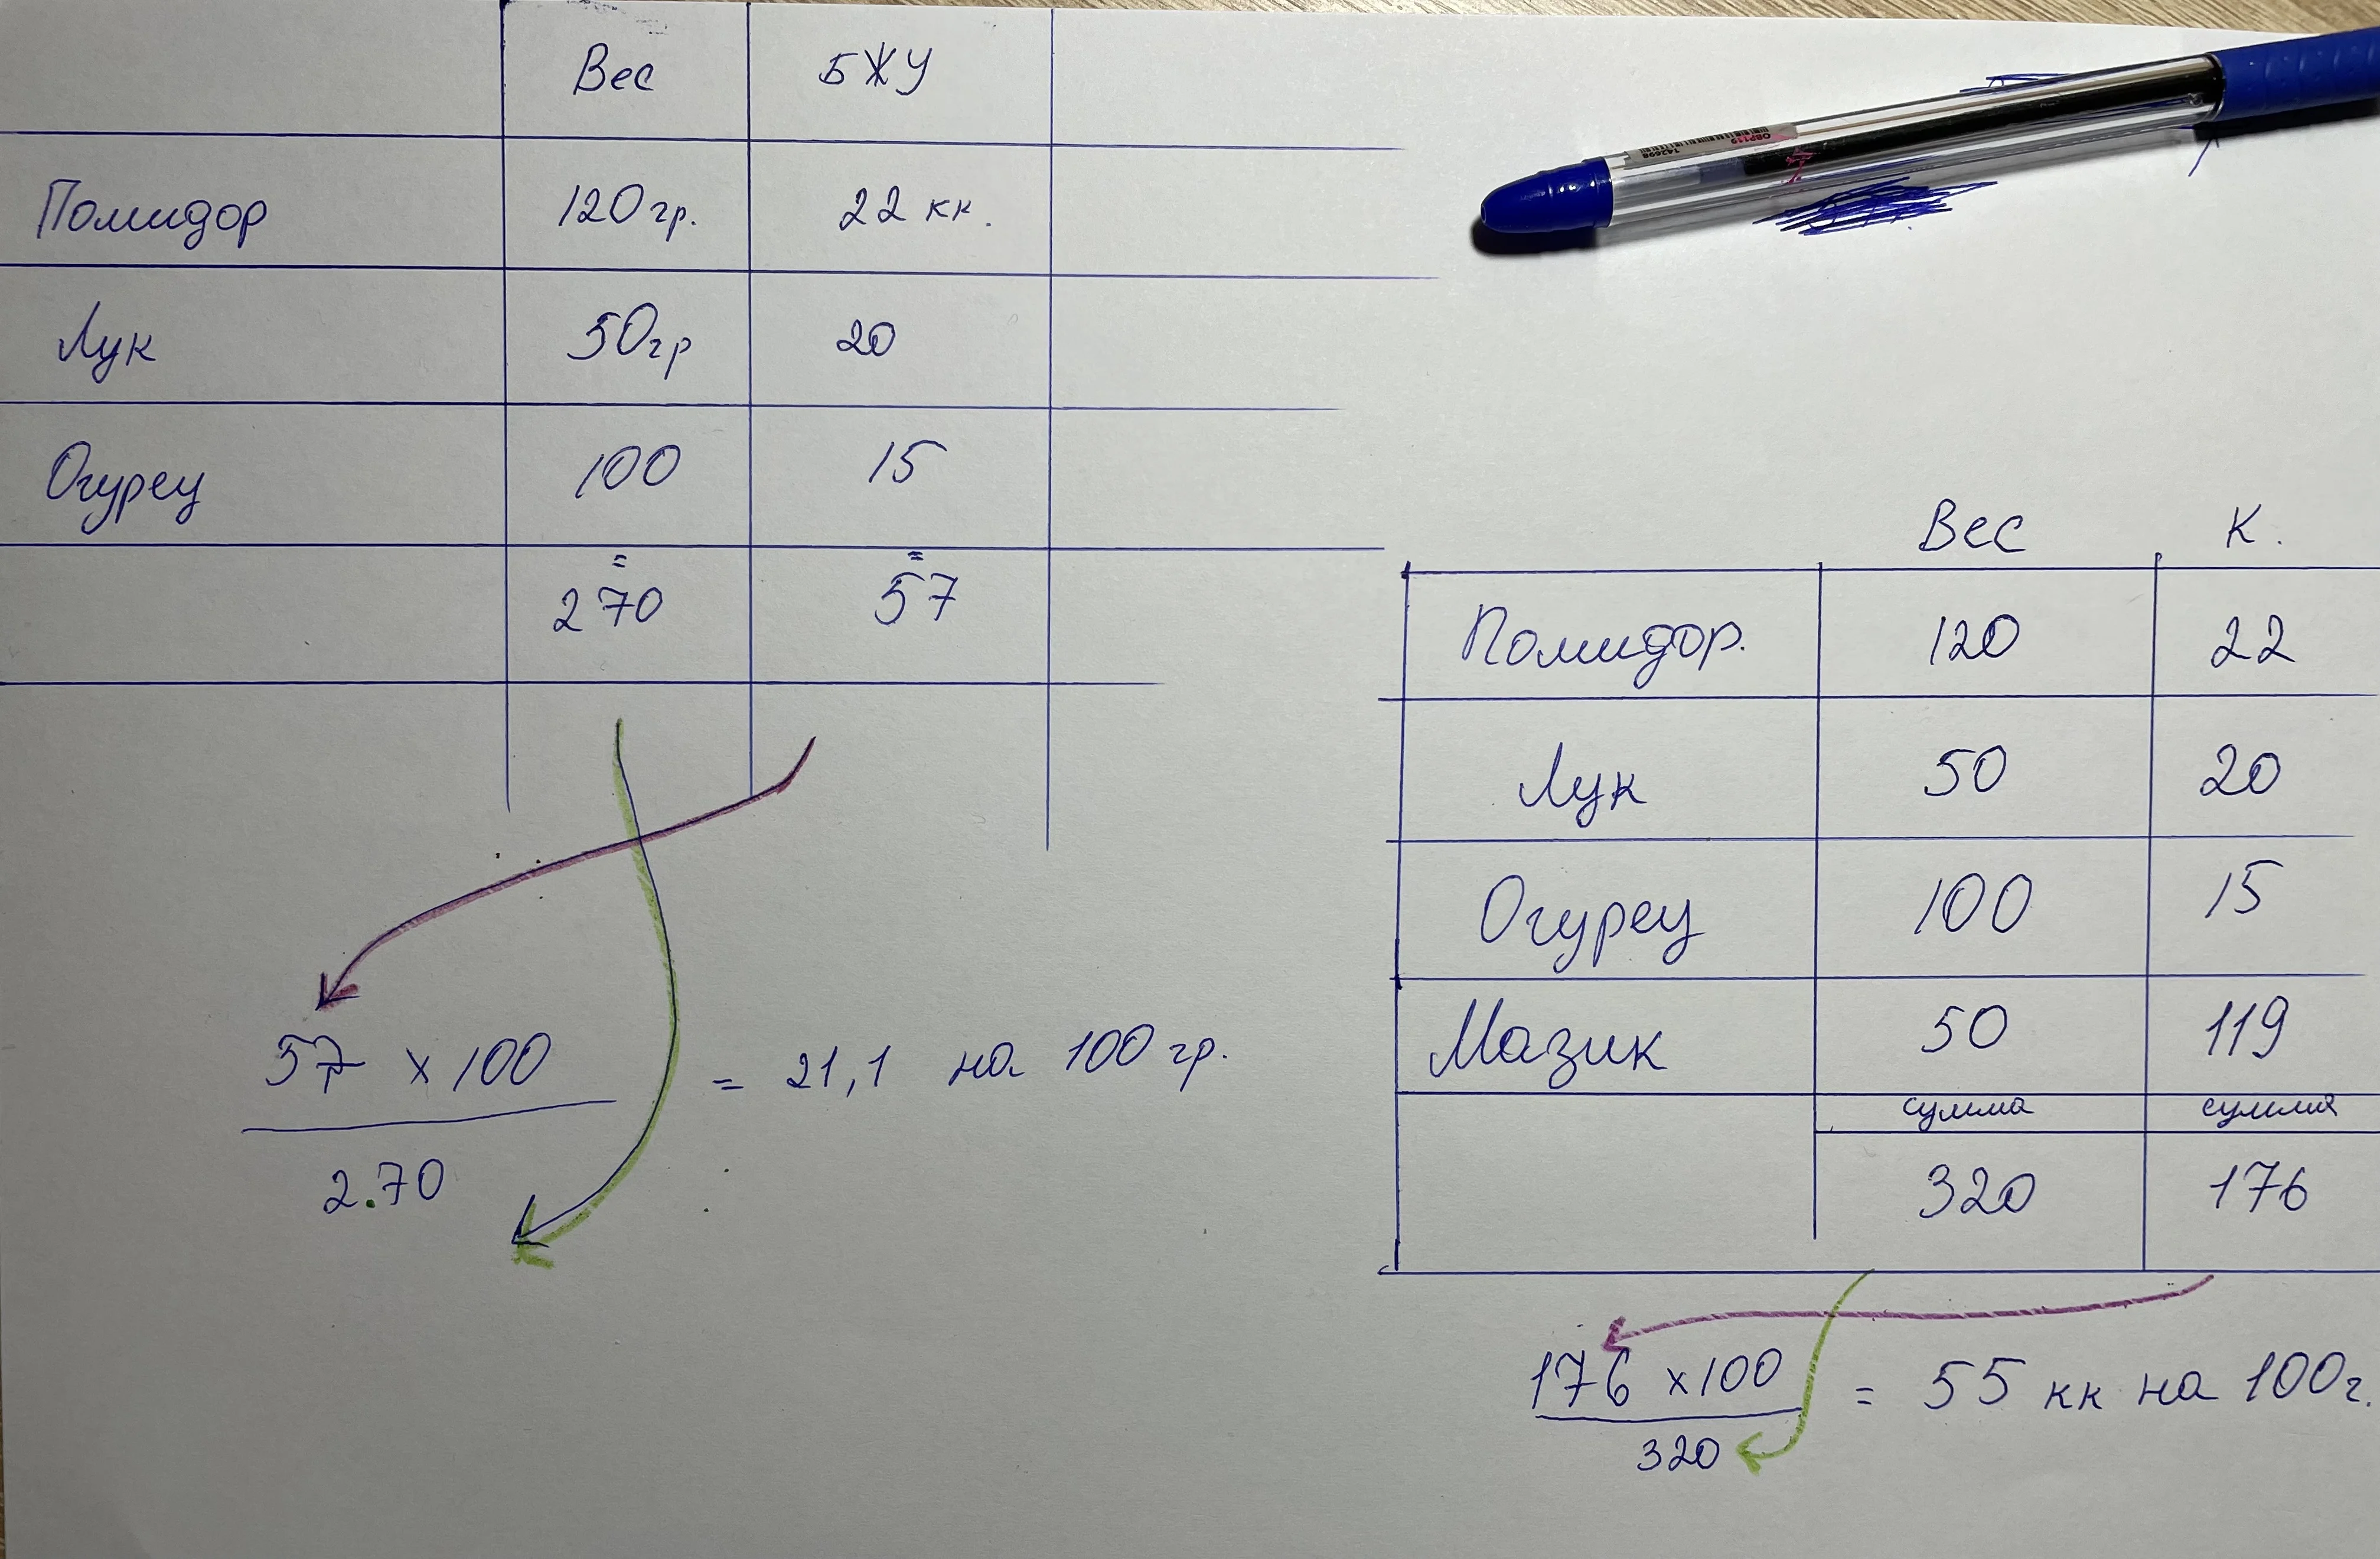 Вес БЖУ
Помидор 120гр. 22 кк.
Лук 50гр 20
Огурец 100 15
= =
270 57
57 x 100
2.70
= 21,1 на 100 гр.
Вес К.
Помидор. 120 22
Лук 50 20
Огурец 100 15
Мазик 50 119
сумма сумма
320 176
176 x100
320
= 55 кк на 100г.
OBP119
142698